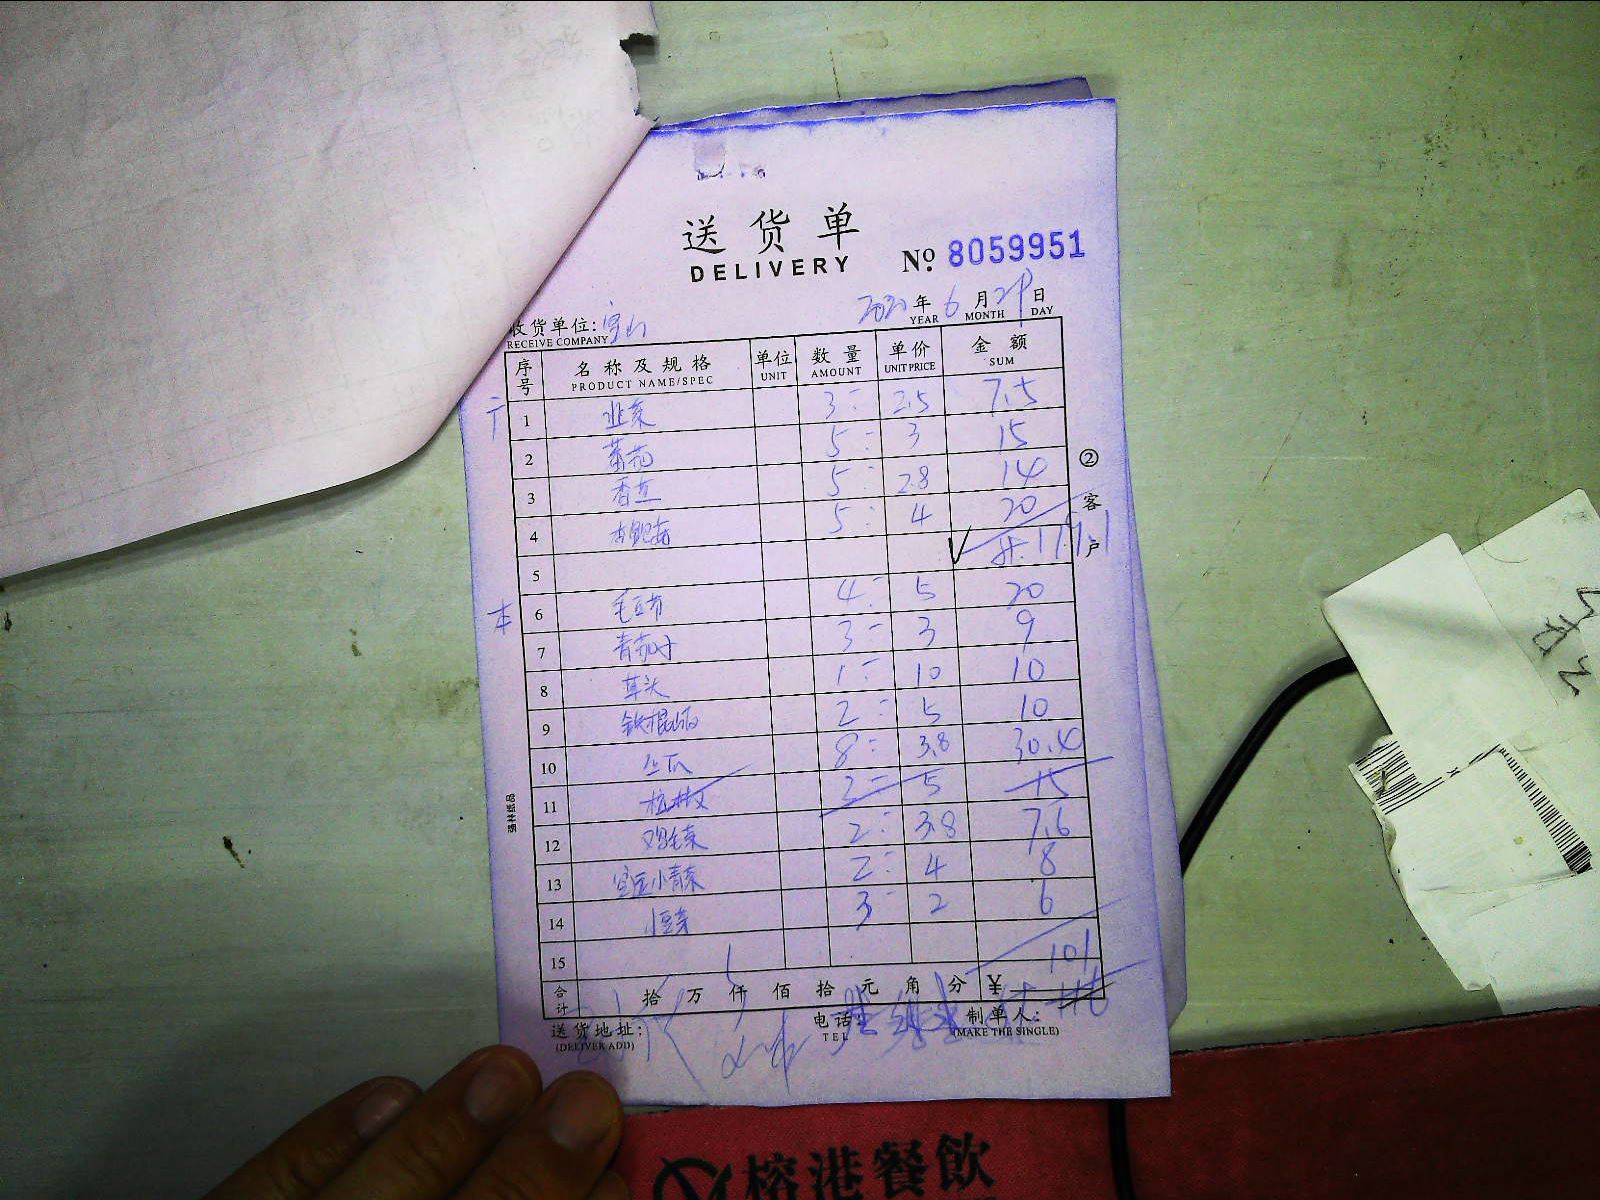 送货单
DELIVERY
№ 8059951
年 6 月 29 日
YEAR MONTH DAY
收货单位:
RECEIVE COMPANY
序号 名称及规格 单位 数量 单价 金额
PRODUCT NAME/SPEC UNIT AMOUNT UNIT PRICE SUM
1 韭菜 3 2.5 7.5
2 蕃茄 5 3 15
3 香豆 5 2.8 14
4 杏鲍菇 5 4 20
5
本
6 毛豆节 4 5 20
7 青茄子 3 3 9
8 草头 1 10 10
9 铁棍山药 2 5 10
10 8 3.8 30.4
11 杭椒 3 5 15
12 鸡毛菜 2 3.8 7.6
13 小青菜 2 4 8
14 小豆芽 3 2 6
15 101
合计 拾 万 仟 佰 拾 元 角 分 ¥
送货地址: 电话: 制单人:
(DELIVER ADD) TEL (MAKE THE SINGLE)
②客户
榕港餐飲